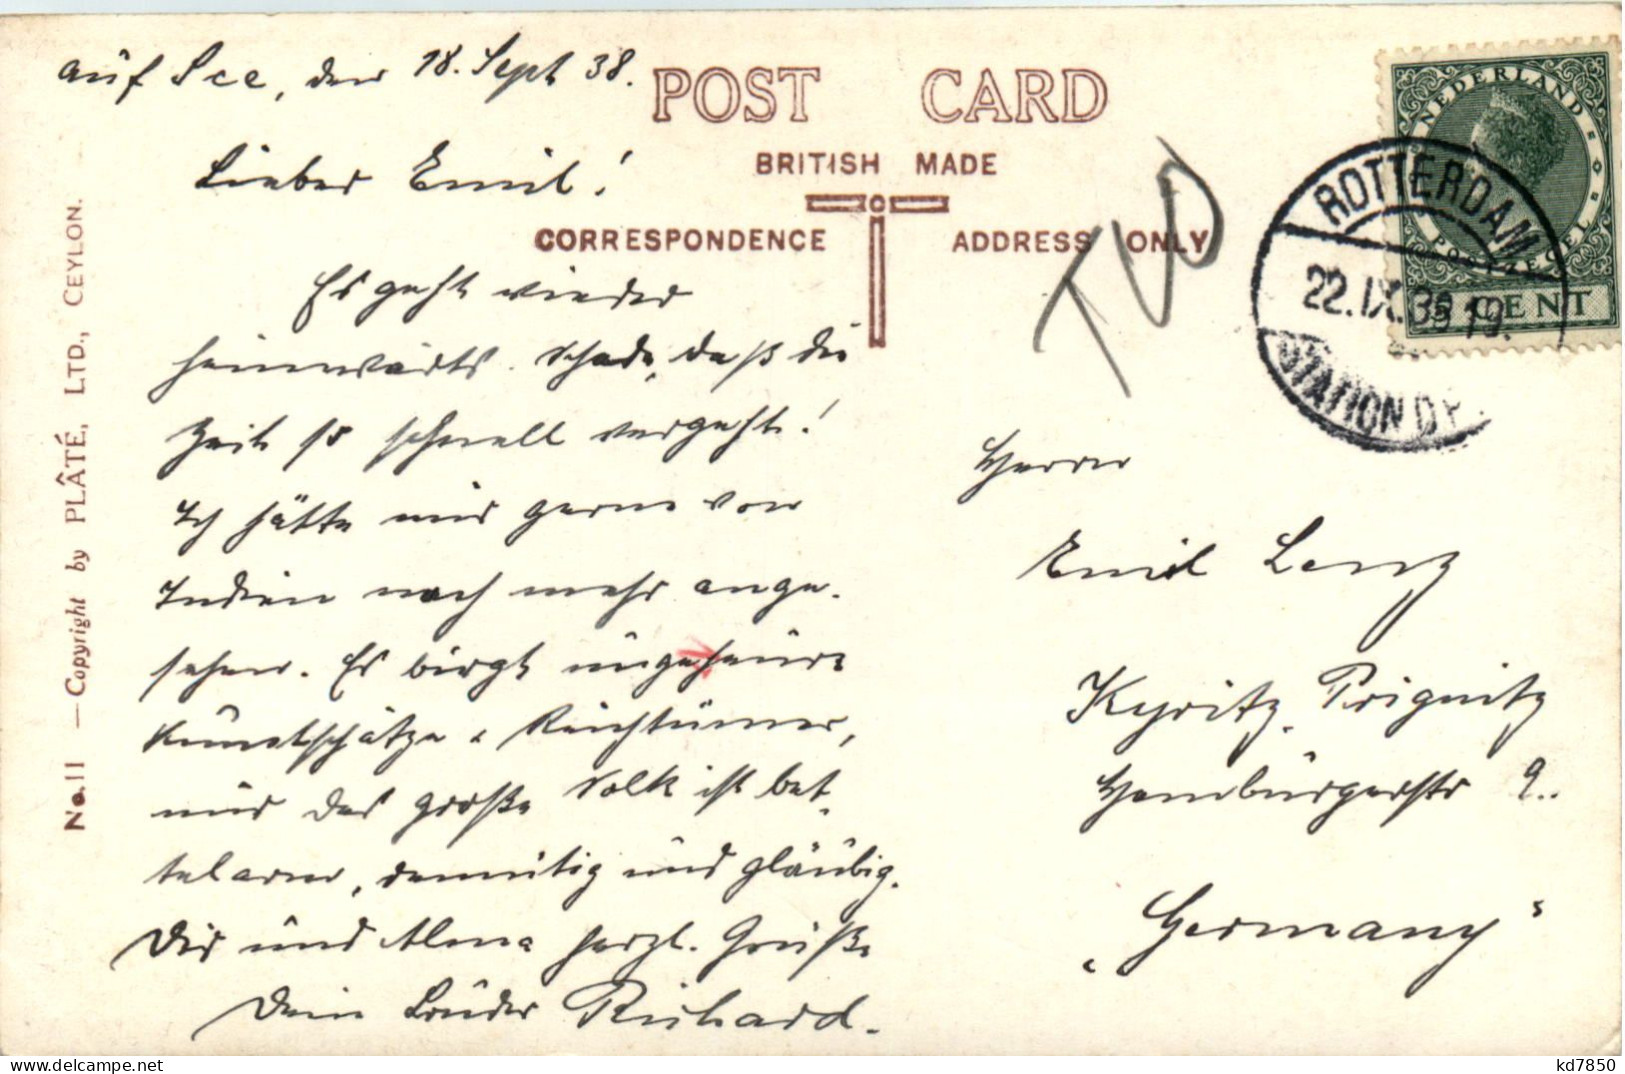 auf See, den 18. Sept 38.
POST CARD
BRITISH MADE
CORRESPONDENCE
ADDRESS ONLY
No. 11 — Copyright by PLÂTÉ, LTD., CEYLON.
Lieber Emil!
Es geht wieder
heimwärts. Schade, daß die
Zeit so schnell vergeht!
Ich hätte mir gerne von
Indien noch mehr ange-
sehen. Es birgt ungeheure
Kunstschätze u Reichtümer,
nur das große Volk ist bet-
telarm, demütig und gläubig.
Dir und Alma herzl. Grüße
Dein Bruder Richard.
NEDERLAND
POSTZEGEL
CENT
ROTTERDAM
22.IX.38 19.
STATION D.P.
Herrn
Emil Lenz
Kyritz, Prignitz
Hamburgerstr 9..
„Germany"
kd7850